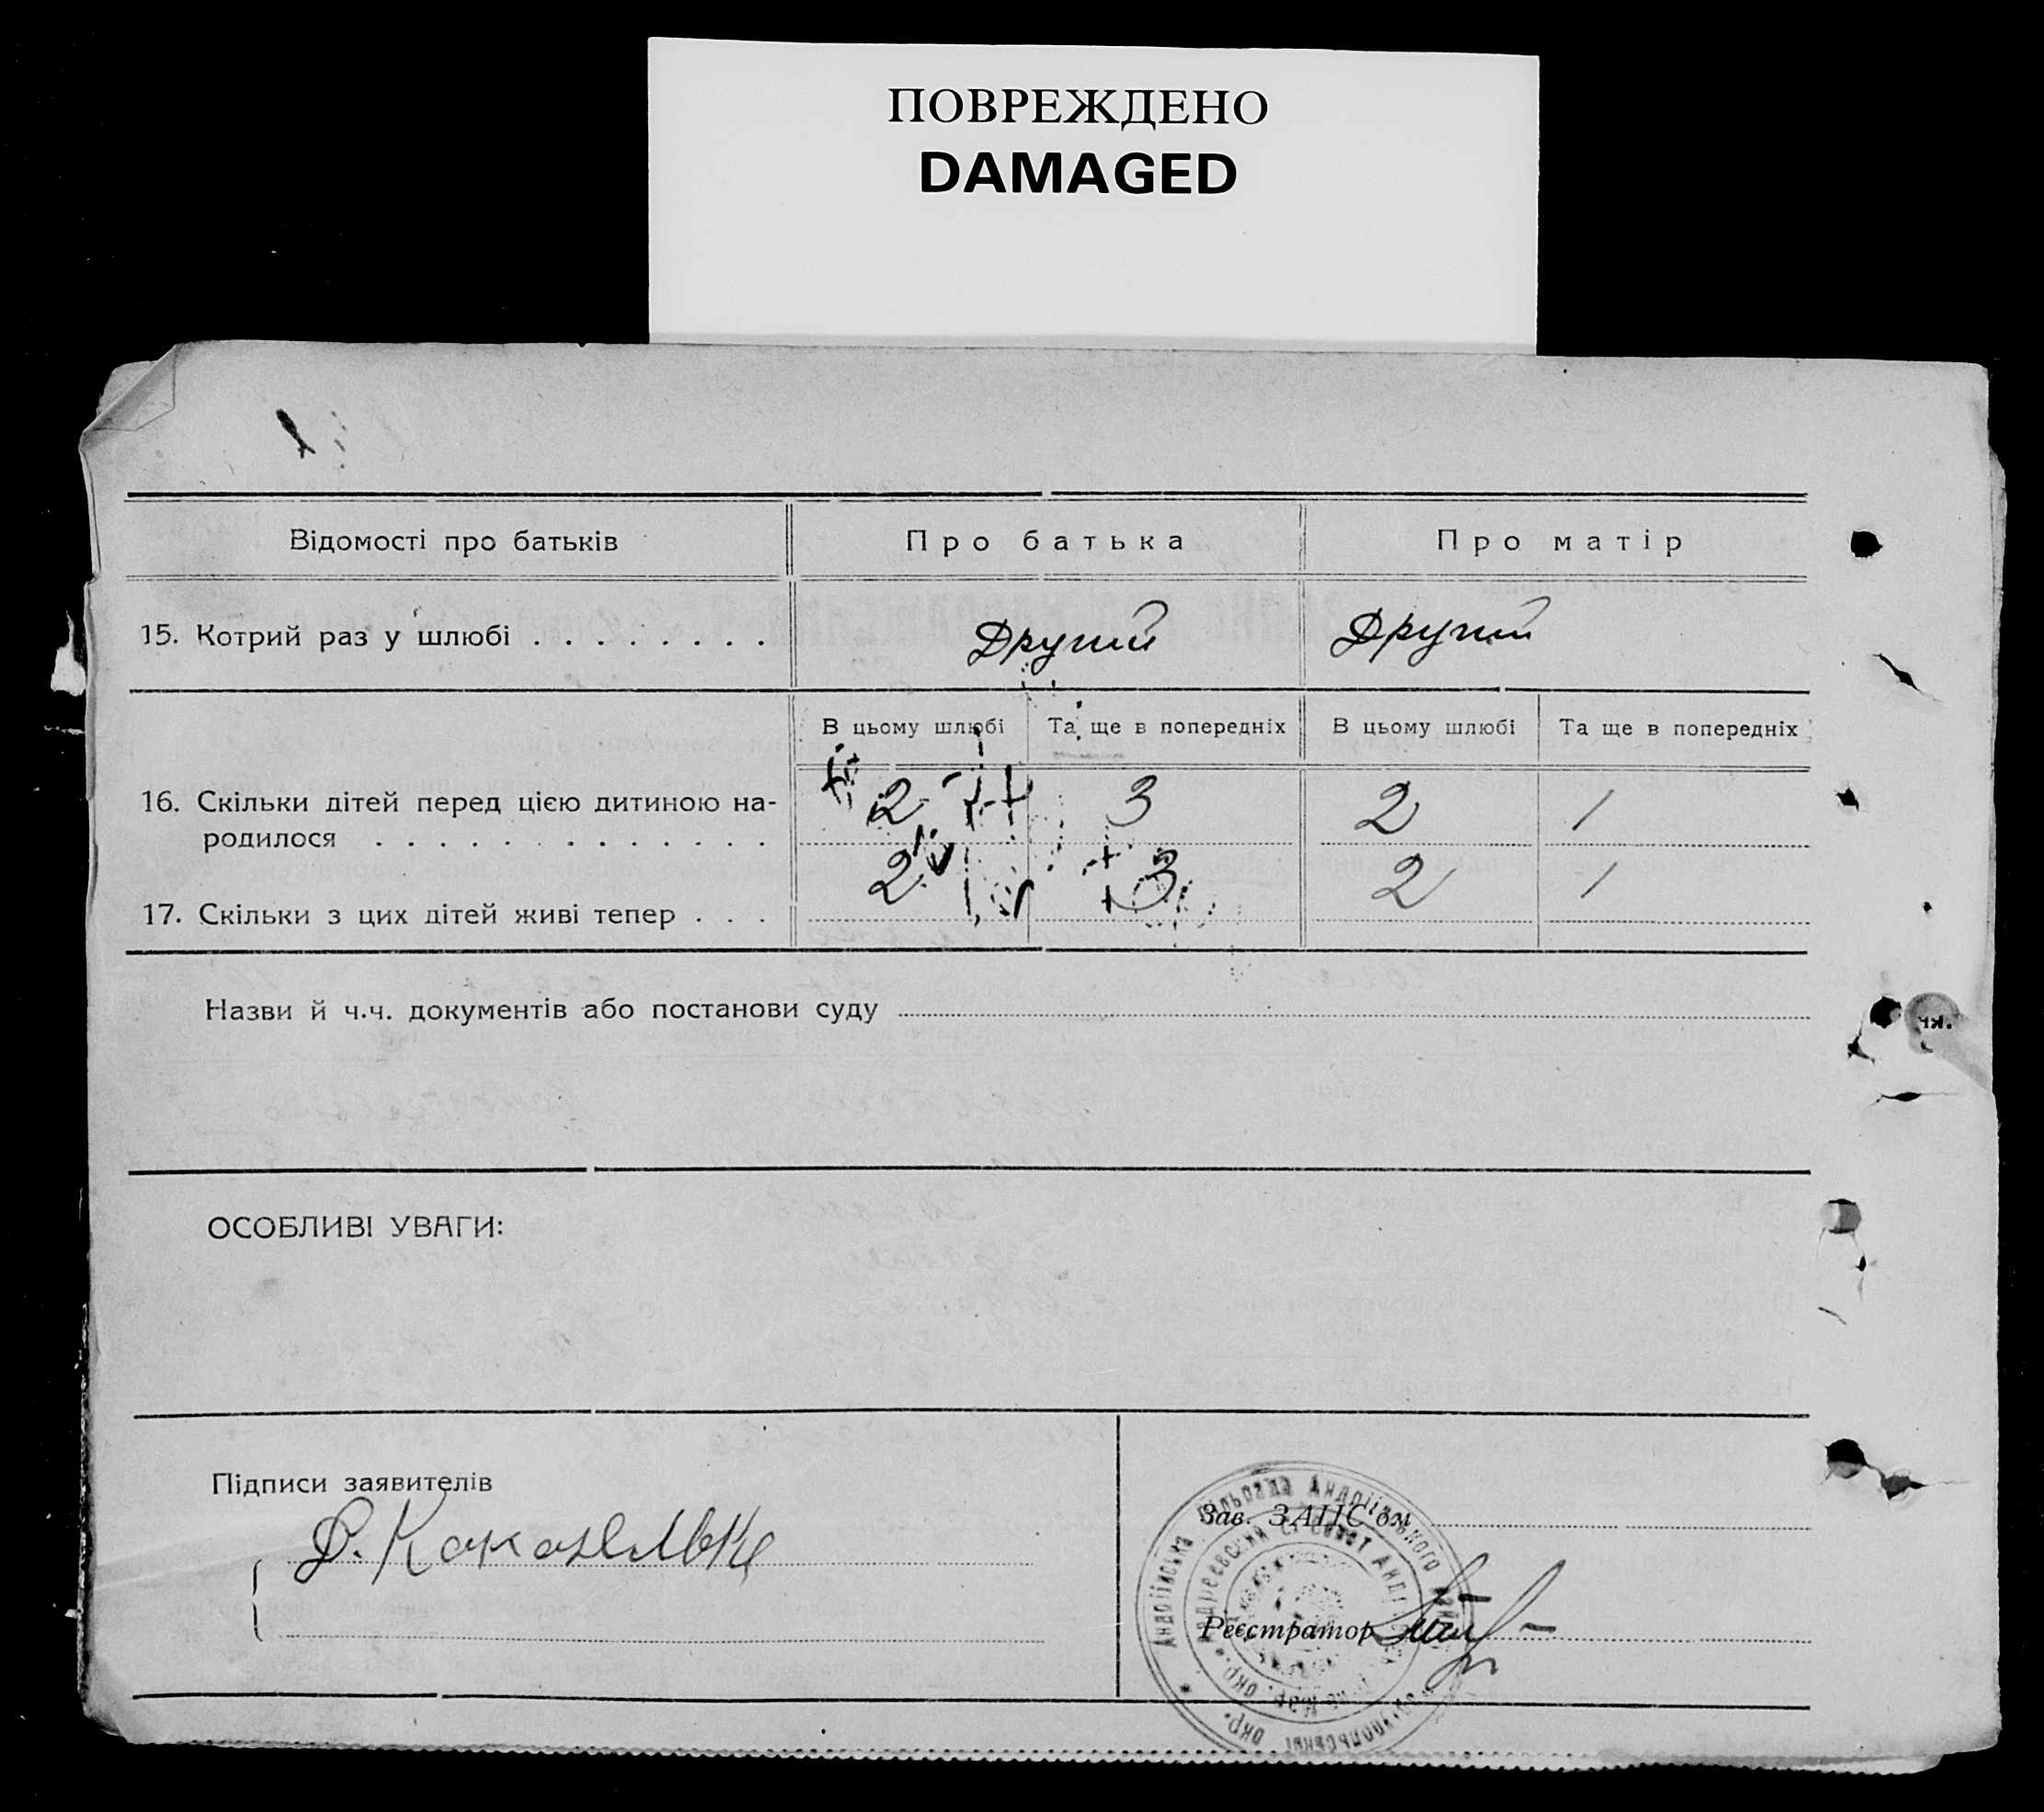 ПОВРЕЖДЕНО
DAMAGED
Відомості про батьків
Про батька
Про матір
15. Котрий раз у шлюбі . . . . . . . .
Другий
Другий
В цьому шлюбі
Та ще в попередніх
В цьому шлюбі
Та ще в попередніх
16. Скільки дітей перед цією дитиною на-
родилося . . . . . . . . . . . . .
2
3
2
1
17. Скільки з цих дітей живі тепер . . .
2
3
2
1
Назви й ч.ч. документів або постанови суду
ОСОБЛИВІ УВАГИ:
Підписи заявителів
Зав. ЗАГС'ом
Реєстратор
Андріївська сільрада Андріївського
окр.